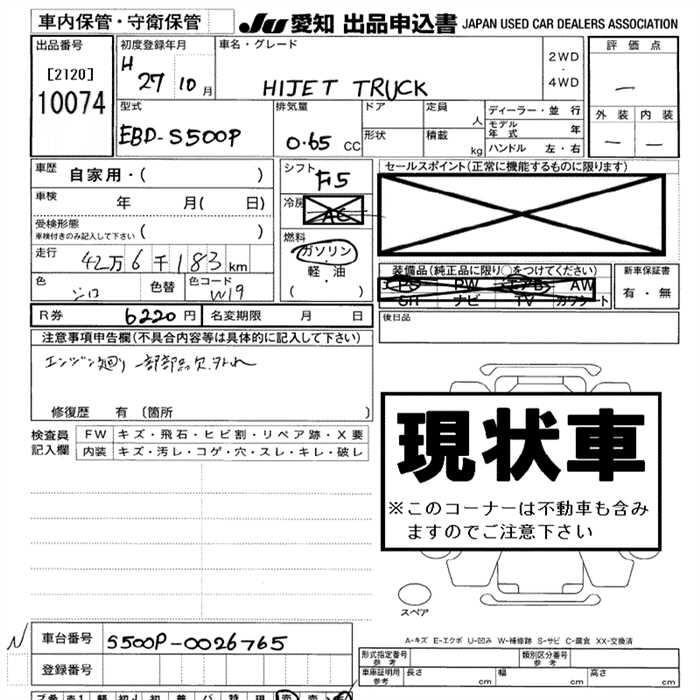 車内保管・守衛保管
JU 愛知 出品申込書 JAPAN USED CAR DEALERS ASSOCIATION
出品番号
[2120]
10074
初度登録年月
H 27 10月
車名・グレード
HIJET TRUCK
2WD
・
4WD
評価点
―
外装 内装
― ―
型式
EBD-S500P
排気量
0.65 CC
ドア
形状
定員 人
積載 kg
ディーラー・並行
モデル年式 年
ハンドル 左・右
車歴 自家用・( )
車検 年 月( 日)
受検形態
車検付きのみ記入して下さい ( )
走行 42万6千183km
色 シロ 色替 色コード W19
シフト F5
冷房 AC
燃料
ガソリン
・
軽・油
( )
セールスポイント(正常に機能するものに限ります)
装備品(純正品に限り○をつけてください)
PS PW エアB AW
SR ナビ TV カワシート
新車保証書
有・無
R券 6220円 名変期限 月 日
後日品
注意事項申告欄(不具合内容等は具体的に記入して下さい)
エンジン廻り 一部部品欠、外れ
修復歴 有〔箇所 〕
検査員
記入欄
FW キズ・飛石・ヒビ割・リペア跡・X要
内装 キズ・汚レ・コゲ・穴・スレ・キレ・破レ
現状車
※このコーナーは不動車も含み
ますのでご注意下さい
スペア
A-キズ E-エクボ U-凹み W-補修跡 S-サビ C-腐食 XX-交換済
車台番号 S500P-0026765
登録番号
形式指定番号
参考
類別区分番号
参考
車庫証明用
参考
長さ cm 幅 cm 高さ cm